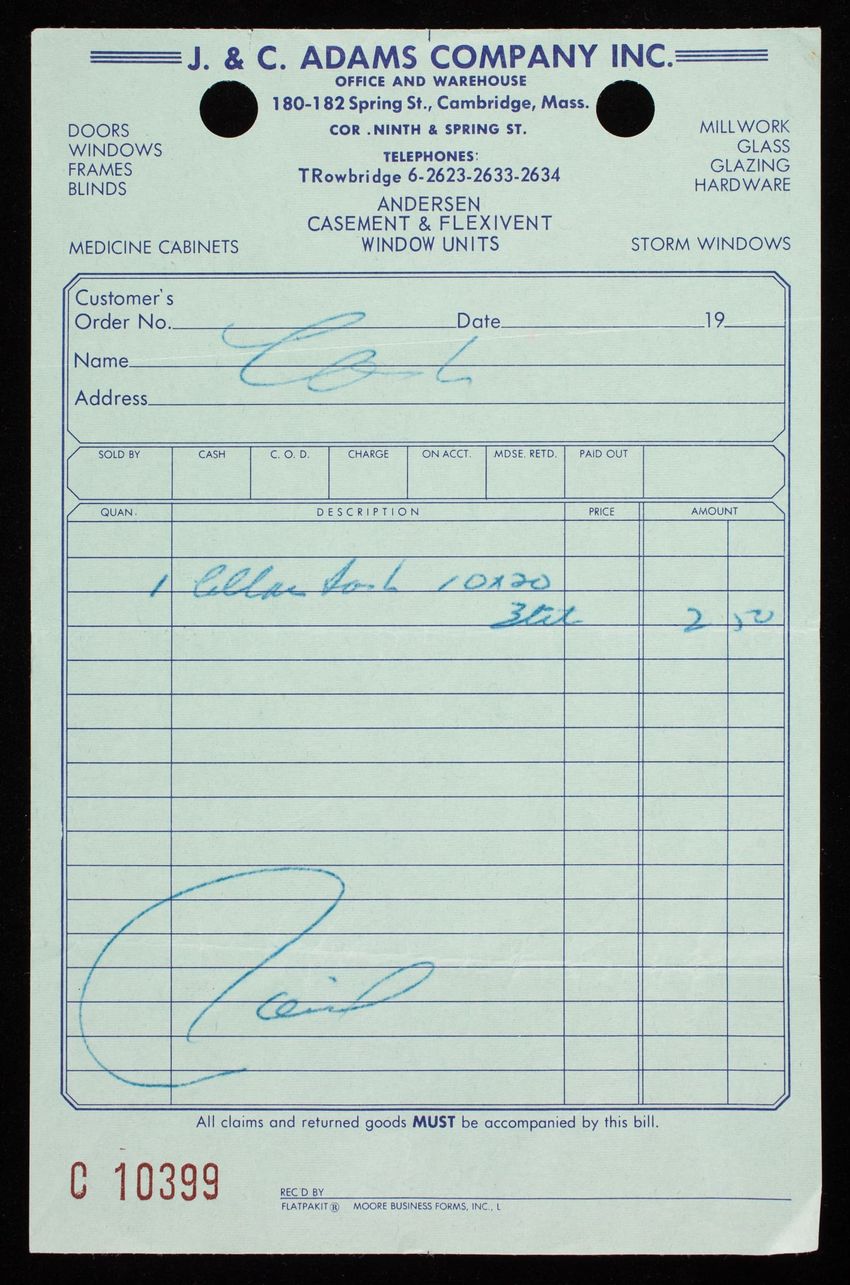 J. & C. ADAMS COMPANY INC.
OFFICE AND WAREHOUSE
180-182 Spring St., Cambridge, Mass.
COR .NINTH & SPRING ST.
TELEPHONES:
TRowbridge 6-2623-2633-2634
DOORS
WINDOWS
FRAMES
BLINDS
MEDICINE CABINETS
ANDERSEN
CASEMENT & FLEXIVENT
WINDOW UNITS
MILLWORK
GLASS
GLAZING
HARDWARE
STORM WINDOWS
Customer's
Order No. Date 19
Name Cash
Address
SOLD BY CASH C. O. D. CHARGE ON ACCT. MDSE. RETD. PAID OUT
QUAN. DESCRIPTION PRICE AMOUNT
1 Cellar Sash 10x20
3 Lit 2 50
Paid
All claims and returned goods MUST be accompanied by this bill.
C 10399
REC'D BY
FLATPAKIT ® MOORE BUSINESS FORMS, INC., L